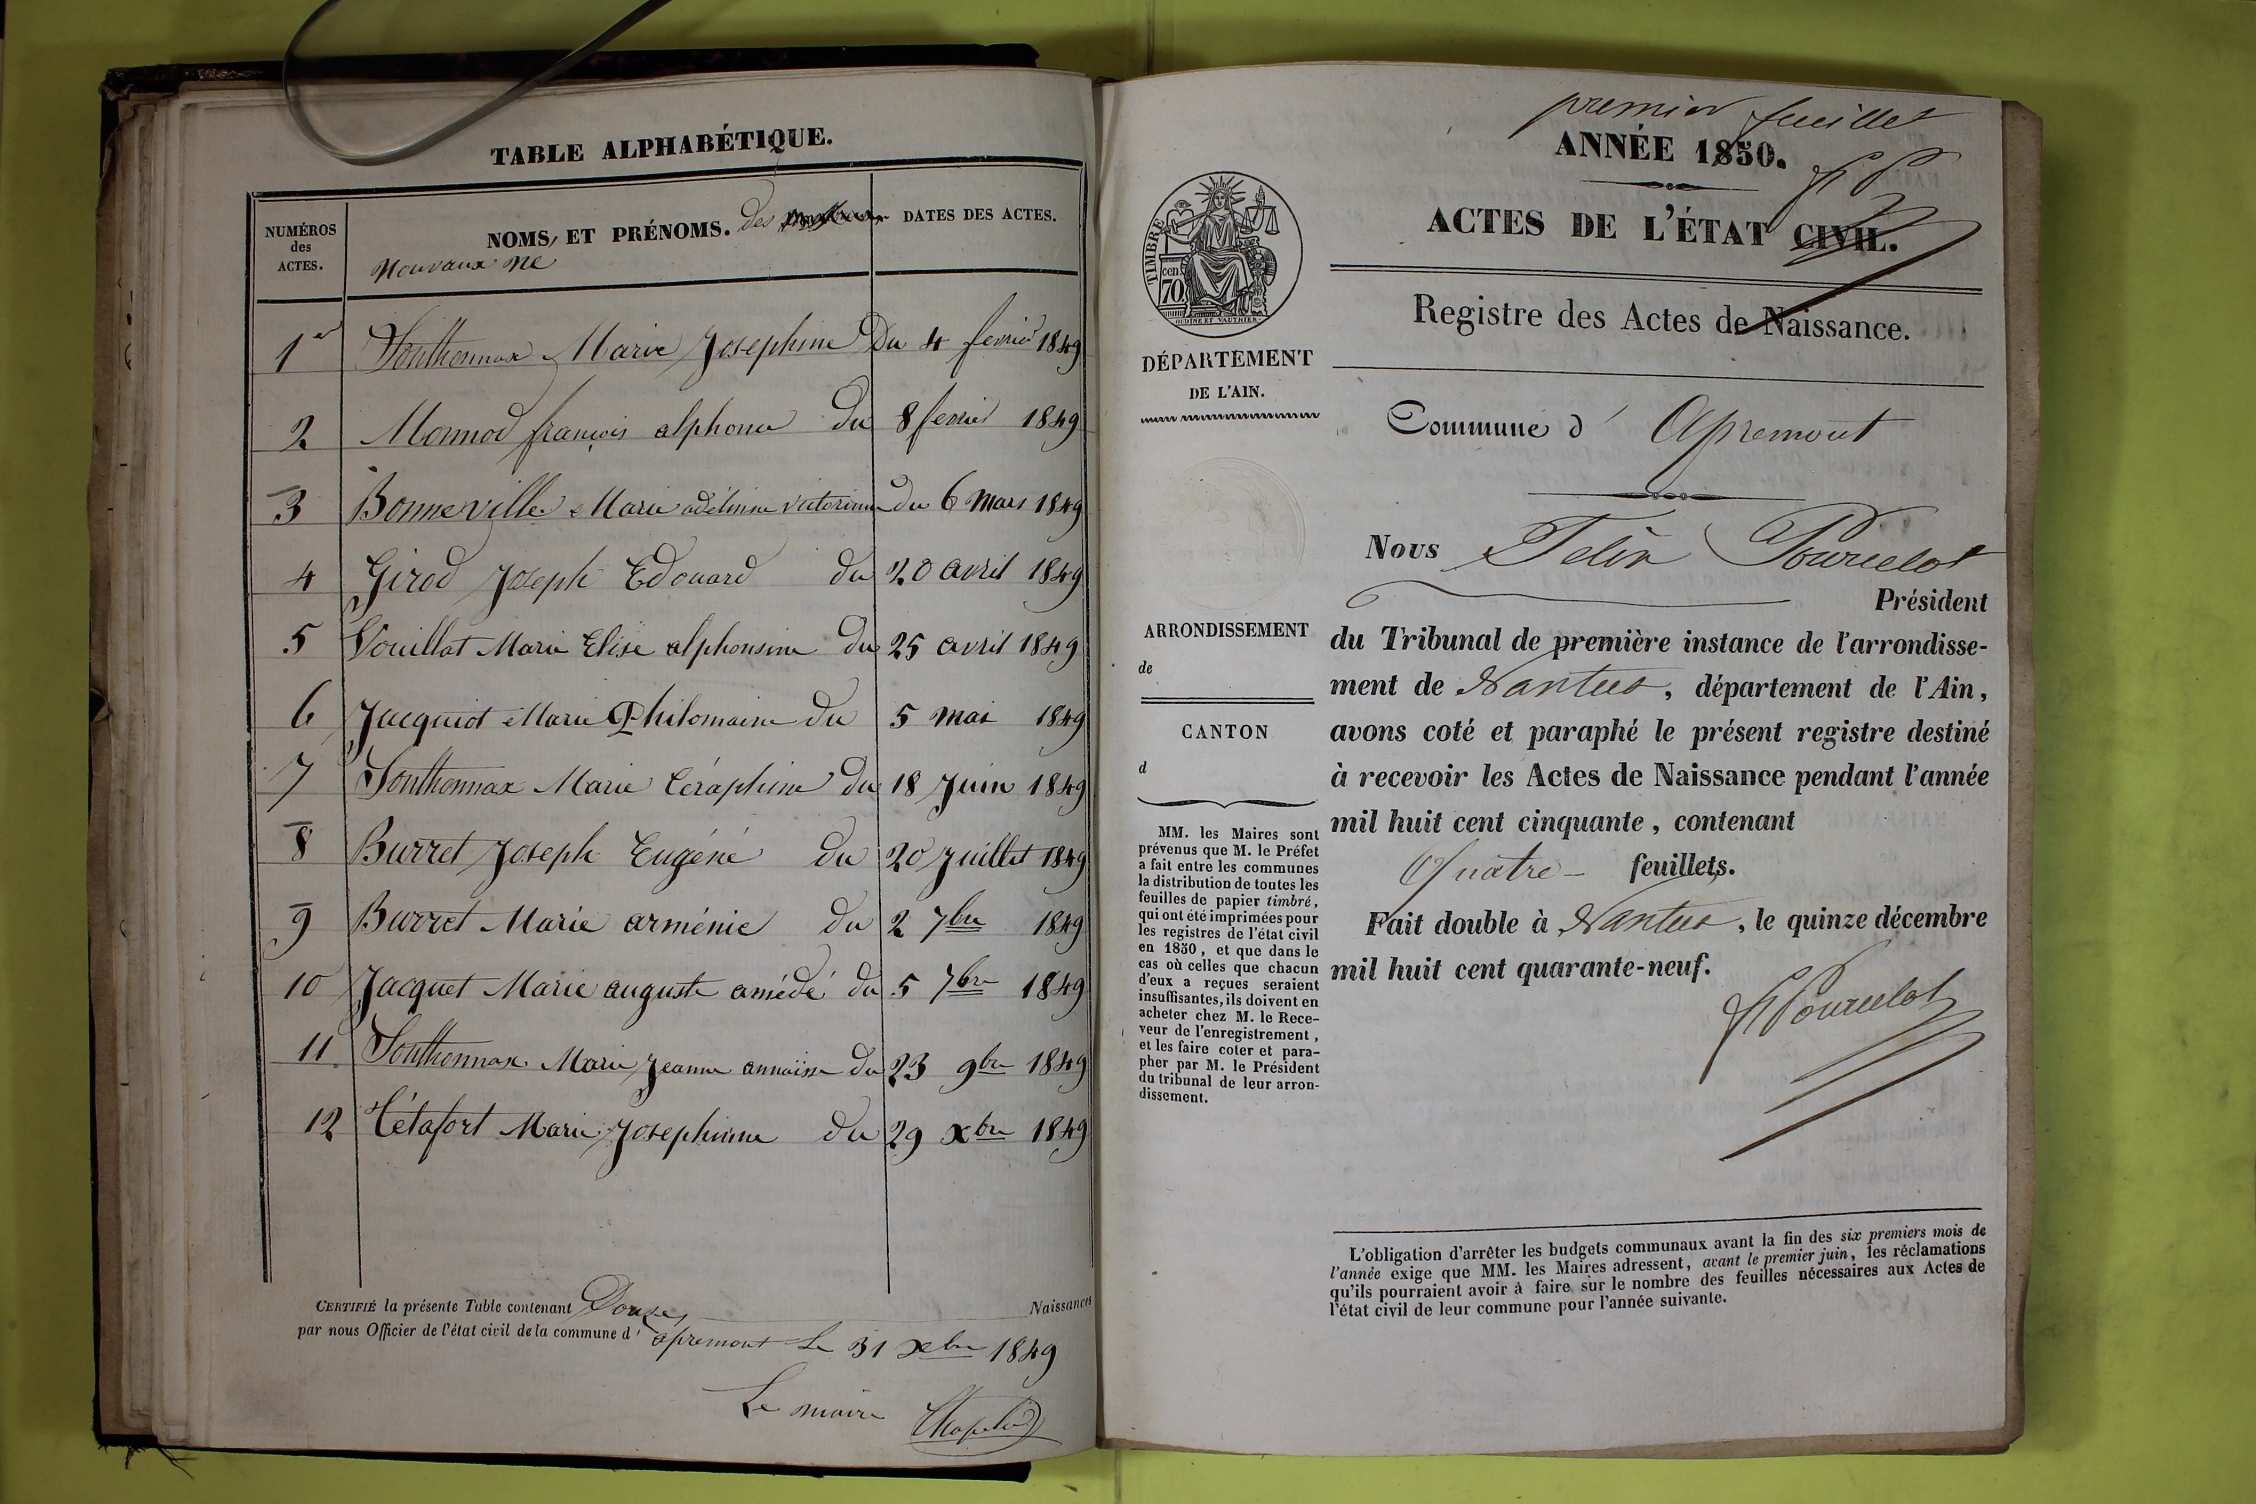 TABLE ALPHABÉTIQUE.
NUMÉROS
des
ACTES.
NOMS, ET PRÉNOMS. des
nouvaux né
DATES DES ACTES.
1er Sonthonnax Marie Josephine Du 4 fevrier 1849
2 Monnod françois alphonse du 8 fevrier 1849
3 Bonneville Marie adélinne victorinne du 6 Mars 1849
4 Girod Joseph Edouard du 20 avril 1849
5 Vouillat Marie Elise alphonsine du 25 avril 1849
6 Jacquiot Marie Philomaine du 5 mai 1849
7 Sonthonnax Marie Céraphine du 18 Juin 1849
8 Burret Joseph Eugéné du 20 Juillet 1849
9 Burret Marie arménie du 2 7bre 1849
10 Jacquet Marie auguste amédé du 5 7bre 1849
11 Sonthonnax Marie Jeanne annaïsse du 23 9bre 1849
12 Tétafort Marie Josephinne du 29 xbre 1849
CERTIFIÉ la présente Table contenant Douze Naissances
par nous Officier de l'état civil de la commune d' apremont Le 31 xbre 1849
Le maire
premier feuillet
ANNÉE 1850.
ACTES DE L'ÉTAT CIVIL.
Registre des Actes de Naissance.
TIMBRE
70 cen.
OUDINÉ ET VAUTHIER
DÉPARTEMENT
DE L'AIN.
Commune d' Apremont
Nous Félix Pourcelot
Président
du Tribunal de première instance de l'arrondisse-
ment de Nantua, département de l'Ain,
avons coté et paraphé le présent registre destiné
à recevoir les Actes de Naissance pendant l'année
mil huit cent cinquante, contenant
Quatre feuillets.
Fait double à Nantua, le quinze décembre
mil huit cent quarante-neuf.
F Pourcelot
ARRONDISSEMENT
de
CANTON
d
MM. les Maires sont
prévenus que M. le Préfet
a fait entre les communes
la distribution de toutes les
feuilles de papier timbré,
qui ont été imprimées pour
les registres de l'état civil
en 1850, et que dans le
cas où celles que chacun
d'eux a reçues seraient
insuffisantes, ils doivent en
acheter chez M. le Rece-
veur de l'enregistrement,
et les faire coter et para-
pher par M. le Président
du tribunal de leur arron-
dissement.
L'obligation d'arrêter les budgets communaux avant la fin des six premiers mois de
l'année exige que MM. les Maires adressent, avant le premier juin, les réclamations
qu'ils pourraient avoir à faire sur le nombre des feuilles nécessaires aux Actes de
l'état civil de leur commune pour l'année suivante.